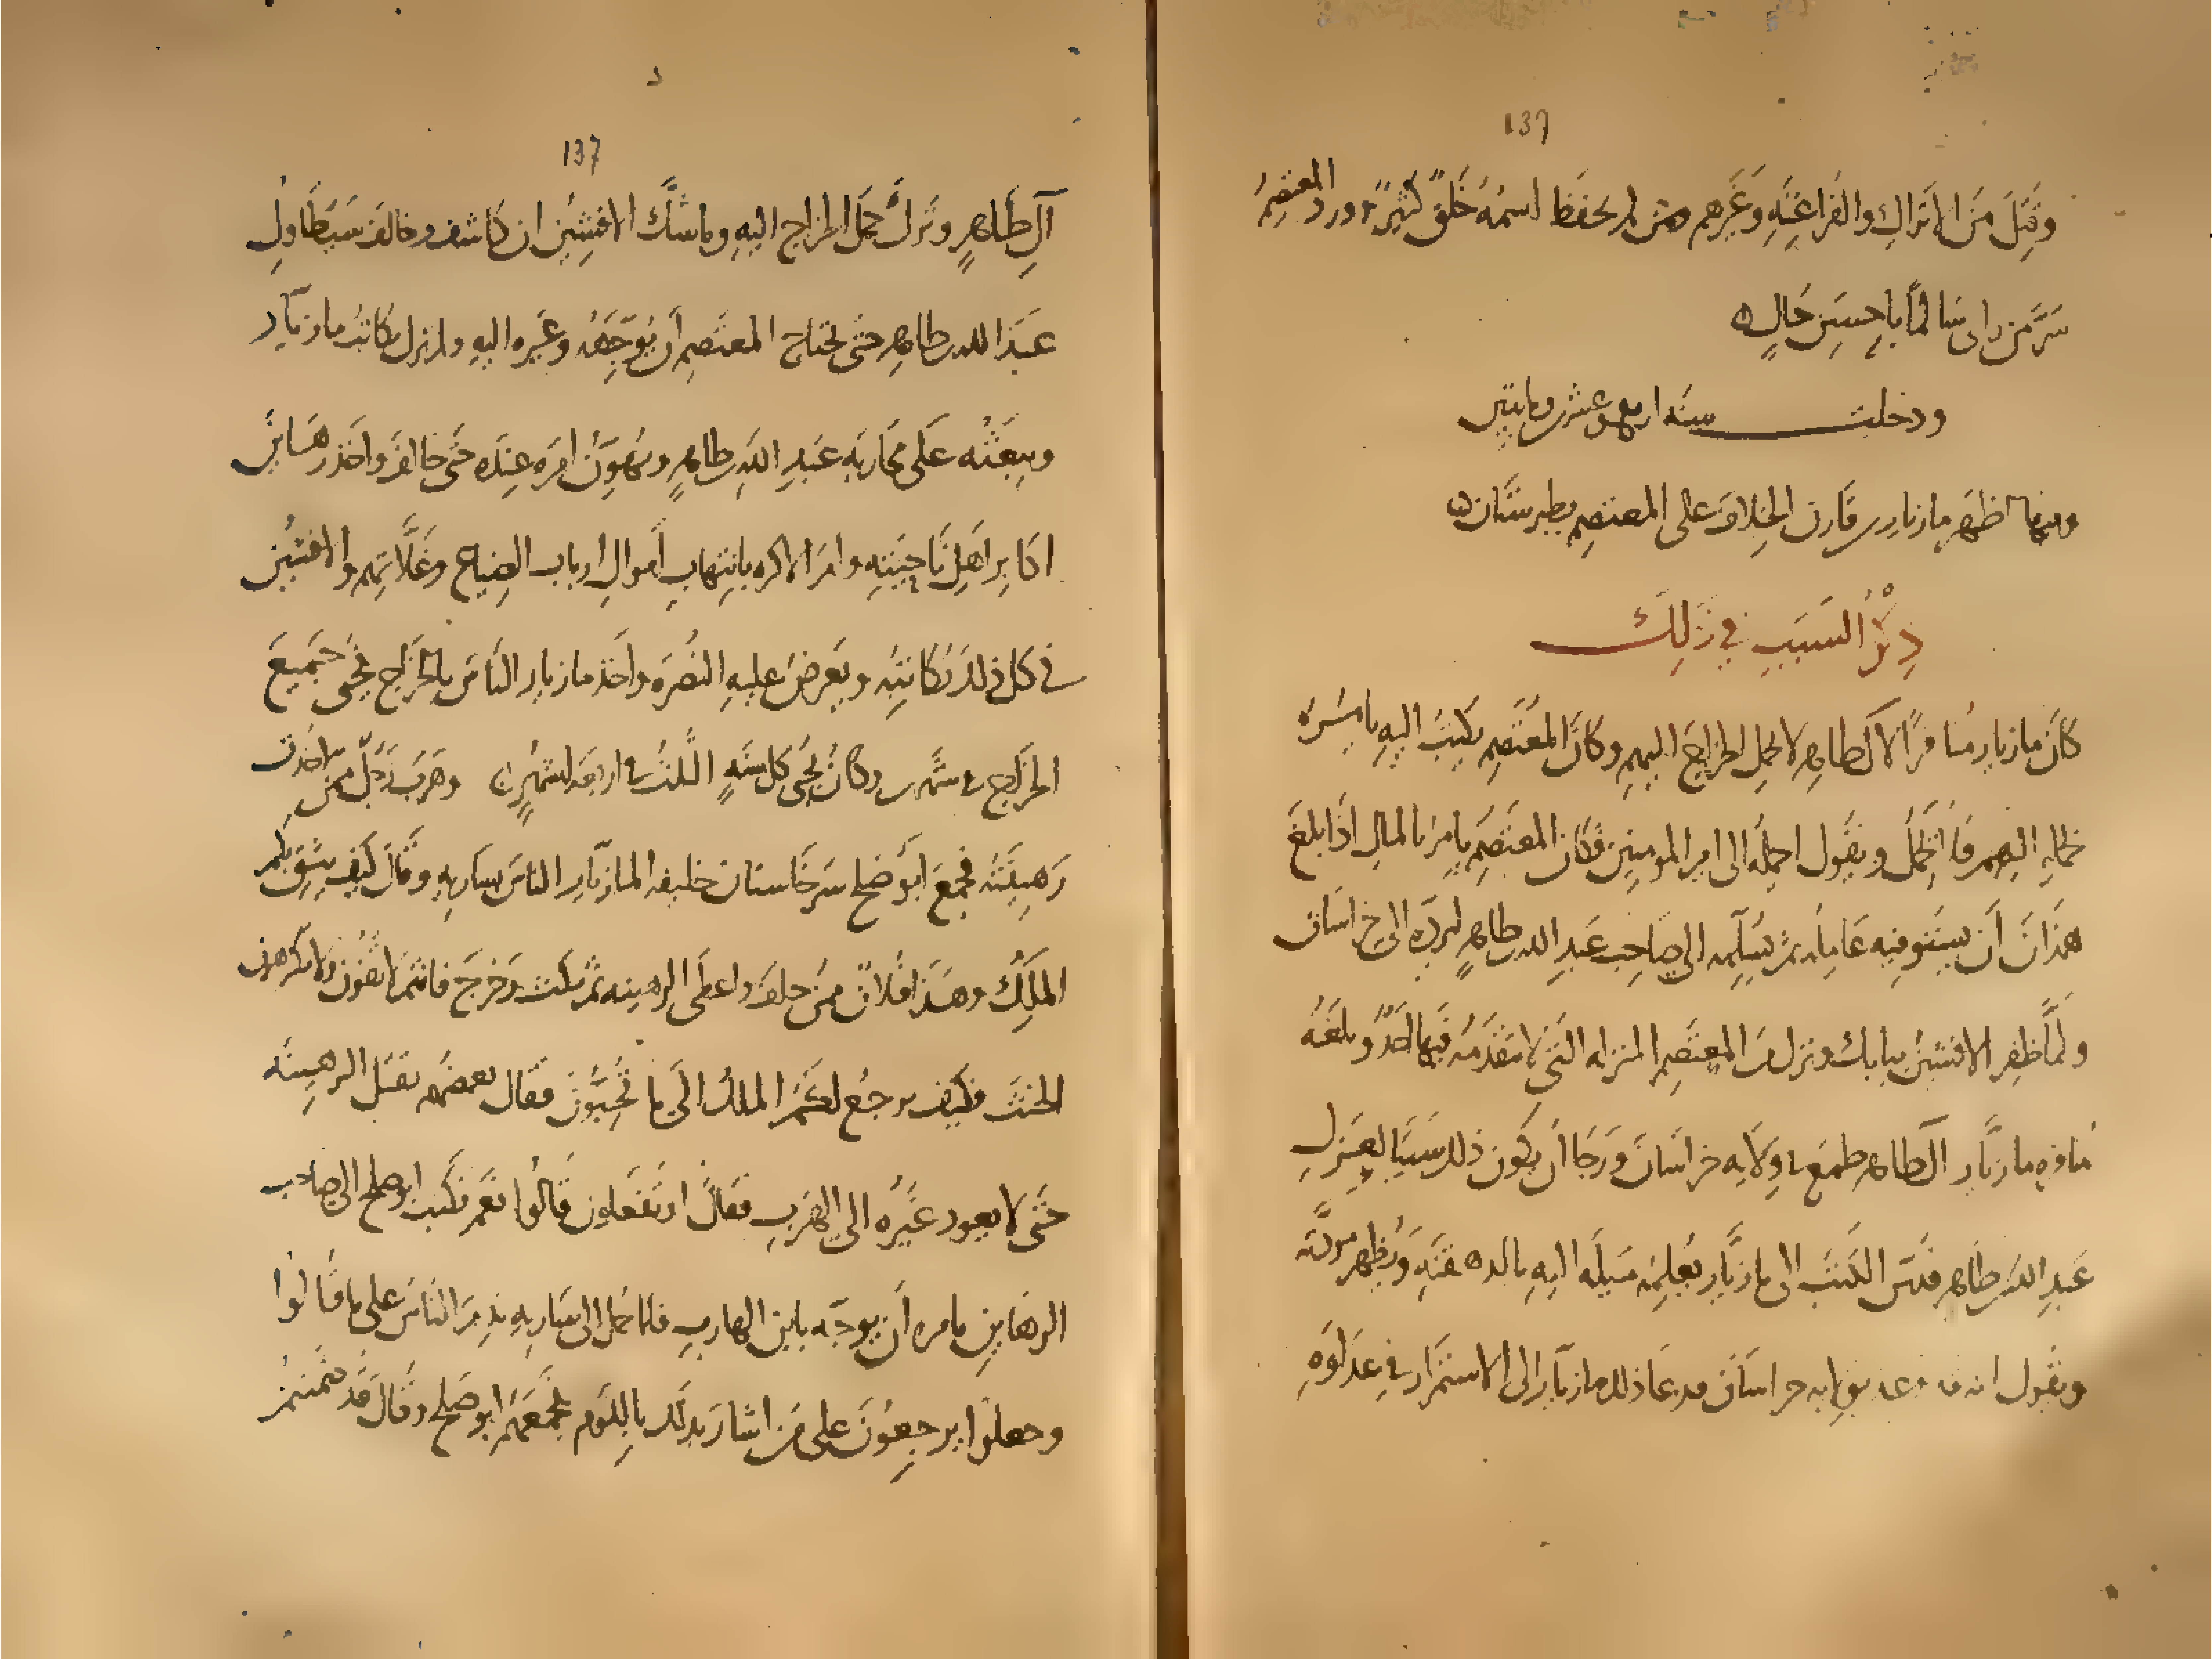 137
وقُتِلَ مِنَ الاتراكِ والفَراغِنَةِ وَغَيرِهم ممّن لم يحفَظ اسمُهُ خَلقٌ كثيرٌ وورد المعتصِمُ
سُرَّ مَن راى سَالماً باحسَنِ حَالٍ ه
ودخلت سنه اربع وعشرين ومايتين
وفيها اظهَر مازيار بن قَارن الخِلافَ على المعتصِم بطبرستَان ه
ذِكرُ السَبَبِ في ذَلِكَ
كانَ مازيار مُنافراً لآل طاهر لا يحمل الخراجَ اليهم وكانَ المُعتَصِم يكتبُ اليهِ يامرُه
بحملِهِ اليهم فلا يَحمِلُ ويقُول احمِلُه الى امير المومنين فكان المعتَصِم يامر بالمالِ اذا بلغ
همَذانَ أن يستوفيه عَامِلُه ثم يُسَلِّمه الى صاحِبِ عَبدِ الله بن طاهرٍ ليردّه الى خراسَان
ولمّا ظفِر الافشينُ ببابكَ ونزل من المعتَصِم المنزله التي لا يتقدّمُه فيها احَدٌ وبلغَهُ
مُنافره مازيَّار آل طاهر طمعَ في وِلايه خراسَانَ ورَجَا أن يكون ذلك سَبَباً لعَزلِ
عَبدِ الله بن طاهر فدسّ الكتبَ الى مازيَّار يُعلِمُه مَيلَه اليهِ بالدهقنَهِ ويُظهر مودّته
ويقُول انه قد وعد بولايه خراسَان فدعَا ذلك مازيّارَ الى الاستمرَار في عدَاوَهِ
137
آلِ طَاهرٍ وتَركِ حملِ الخراج اليهِ وما شكَّ الافشِين ان كاشف وخالَف سَيَطَاوِل
عَبدَ الله بن طاهرٍ حتَّى يحتاج المعتَصِم أن يُوجِّهَهُ وغَيره اليهِ ولم يزل يكاتبُ مازيّار
ويبعَثُه عَلى محَاربَه عَبدِ الله بن طاهرٍ ويُهوّنُ امره عِندَه حتَّى خالفَ واخَذ رهَاين
اكابِر اَهلِ نَاحيَتِهِ وامَر الاكره بانتِهابِ أموالِ ارباب الضِياع وغَلَّاتِهم والافشين
في كل ذلك يكاتبُه ويَعرضُ عليهِ النُصرَه واخذ مازيار النّاسَ بالخَراج فجبى جَميعَ
الخَراجِ في شَهرين وكانَ يُجبى كل سنَهٍ الثلثُ في اربعه اشهُرٍ ه وهَرَبَ رجلٌ ممن اخذت
رَهينَتُه فجمَعَ ابو صَلح سَرخاستان خليفه المازيّارِ الناسَ بسَاريهِ وقَال كيفَ يثقُ بكم
المَلِكُ وهَذا فُلانٌ ممن حلفَ واعطَى الرهينه ثم نكث وخَرَجَ فانتم لا تفُون ولا تكرهون
الحنثَ فكيف يرجعُ لكم الملكُ الى ما تُحِبُّونَ فقال بعضهم نقتل الرهينَه
حتَّى لا يعود غَيره الى الهَربِ فقالَ اوتفعَلون قالُوا نعَم فكتب ابو صلح الى صاحب
الرهَاينِ يامره أن يوجّه بابن الهاربِ فلما حُمل الى ساريهِ نَدِمَ النَّاسُ على ما قَالوا
وجعلوا يرجعُونَ على مَن اشارَ بذلك باللوم فجمَعَهم ابو صَلح وقَالَ قد ضمنتم